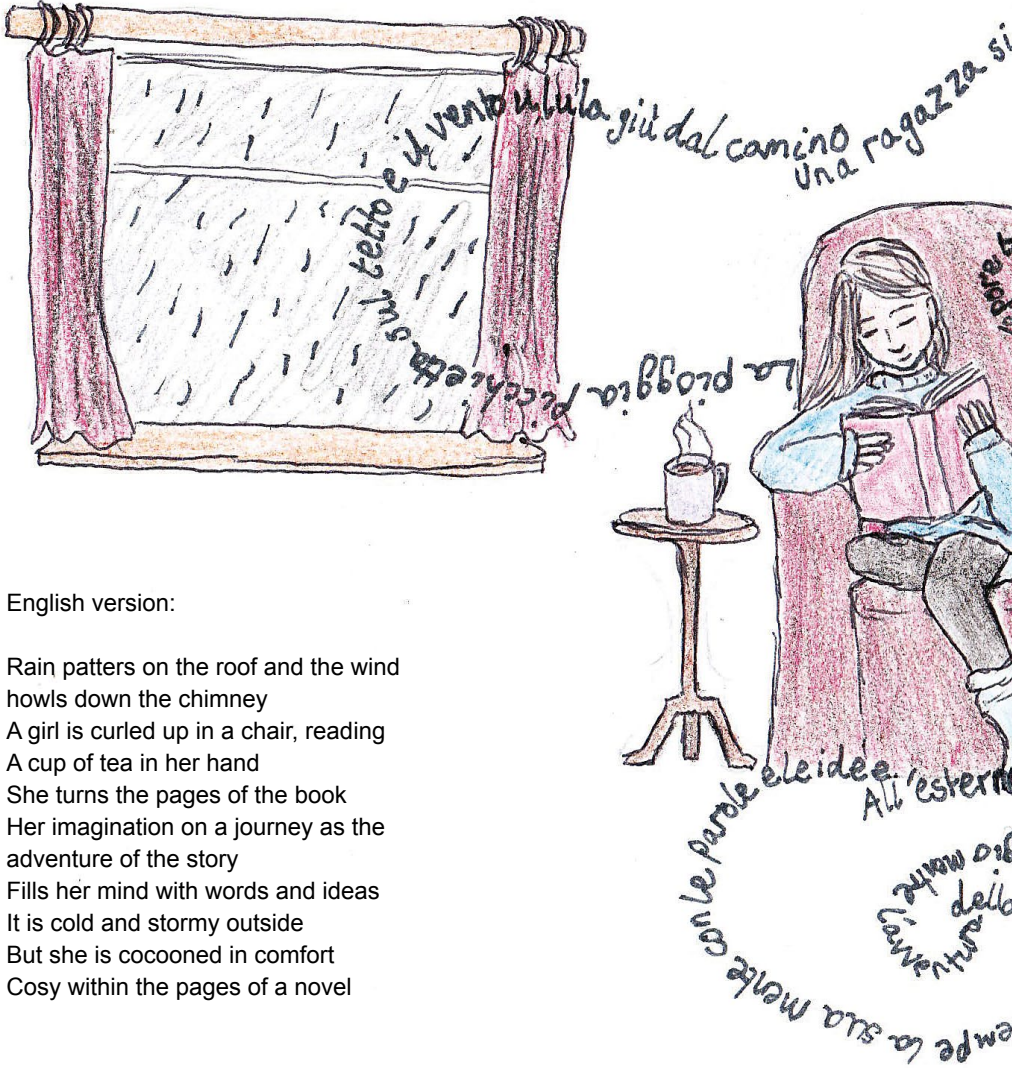 La pioggia picchietta sul tetto e il vento ulula giù dal camino
Una ragazza si
gio mentre
l'avventura
della
empe la sua mente con le parole e le idee
All'estern
English version:
Rain patters on the roof and the wind
howls down the chimney
A girl is curled up in a chair, reading
A cup of tea in her hand
She turns the pages of the book
Her imagination on a journey as the
adventure of the story
Fills her mind with words and ideas
It is cold and stormy outside
But she is cocooned in comfort
Cosy within the pages of a novel